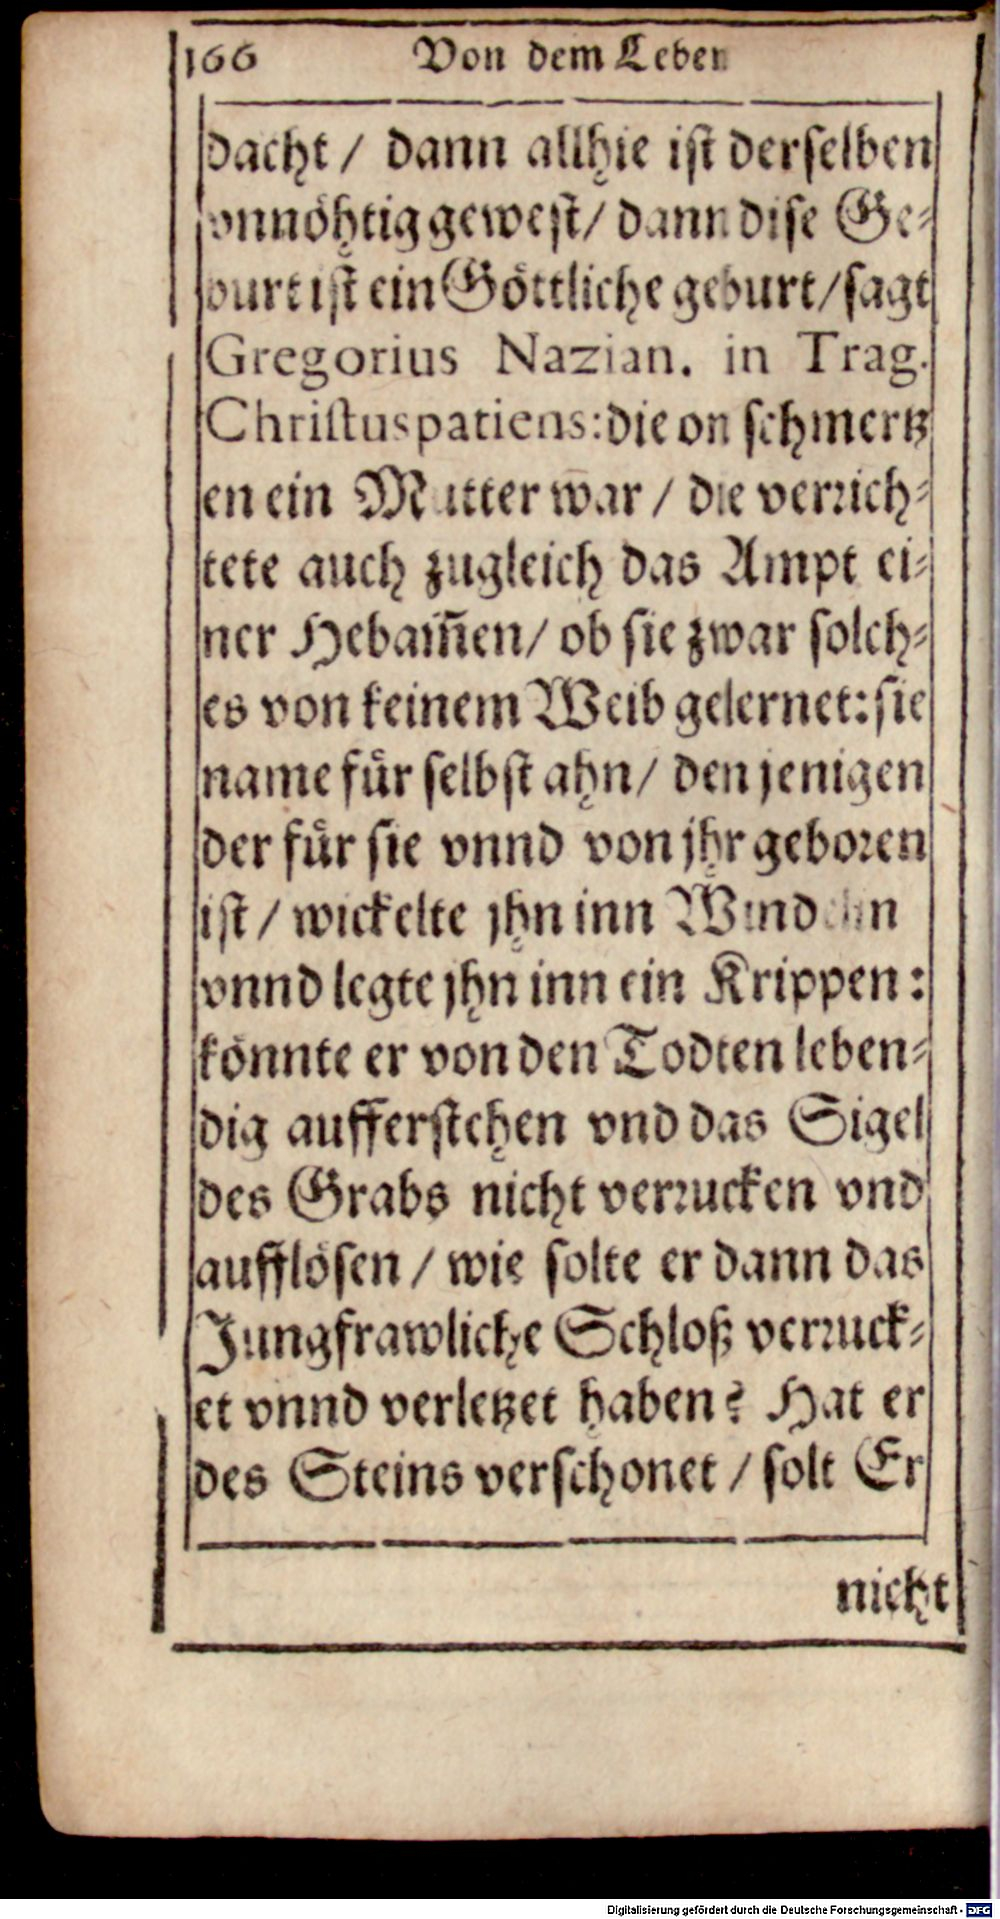 166 Von dem Leben
dacht / dann allhie ist derselben
vnnöhtig gewest / dann dise Ge-
burt ist ein Göttliche geburt / sagt
Gregorius Nazian. in Trag.
Christus patiens: die on schmertz
en ein Mutter war / die verrich-
tete auch zugleich das Ampt ei-
ner Hebam̃en / ob sie zwar solch-
es von keinem Weib gelernet: sie
name für selbst ahn / den jenigen
der für sie vnnd von jhr geboren
ist / wickelte jhn inn Windelin
vnnd legte jhn inn ein Krippen:
könnte er von den Todten leben-
dig aufferstehen vnd das Sigel
des Grabs nicht verrucken vnd
aufflösen / wie solte er dann das
Jungfrawliche Schloß verruck-
et vnnd verletzet haben? Hat er
des Steins verschonet / solt Er
nicht
Digitalisierung gefördert durch die Deutsche Forschungsgemeinschaft - DFG